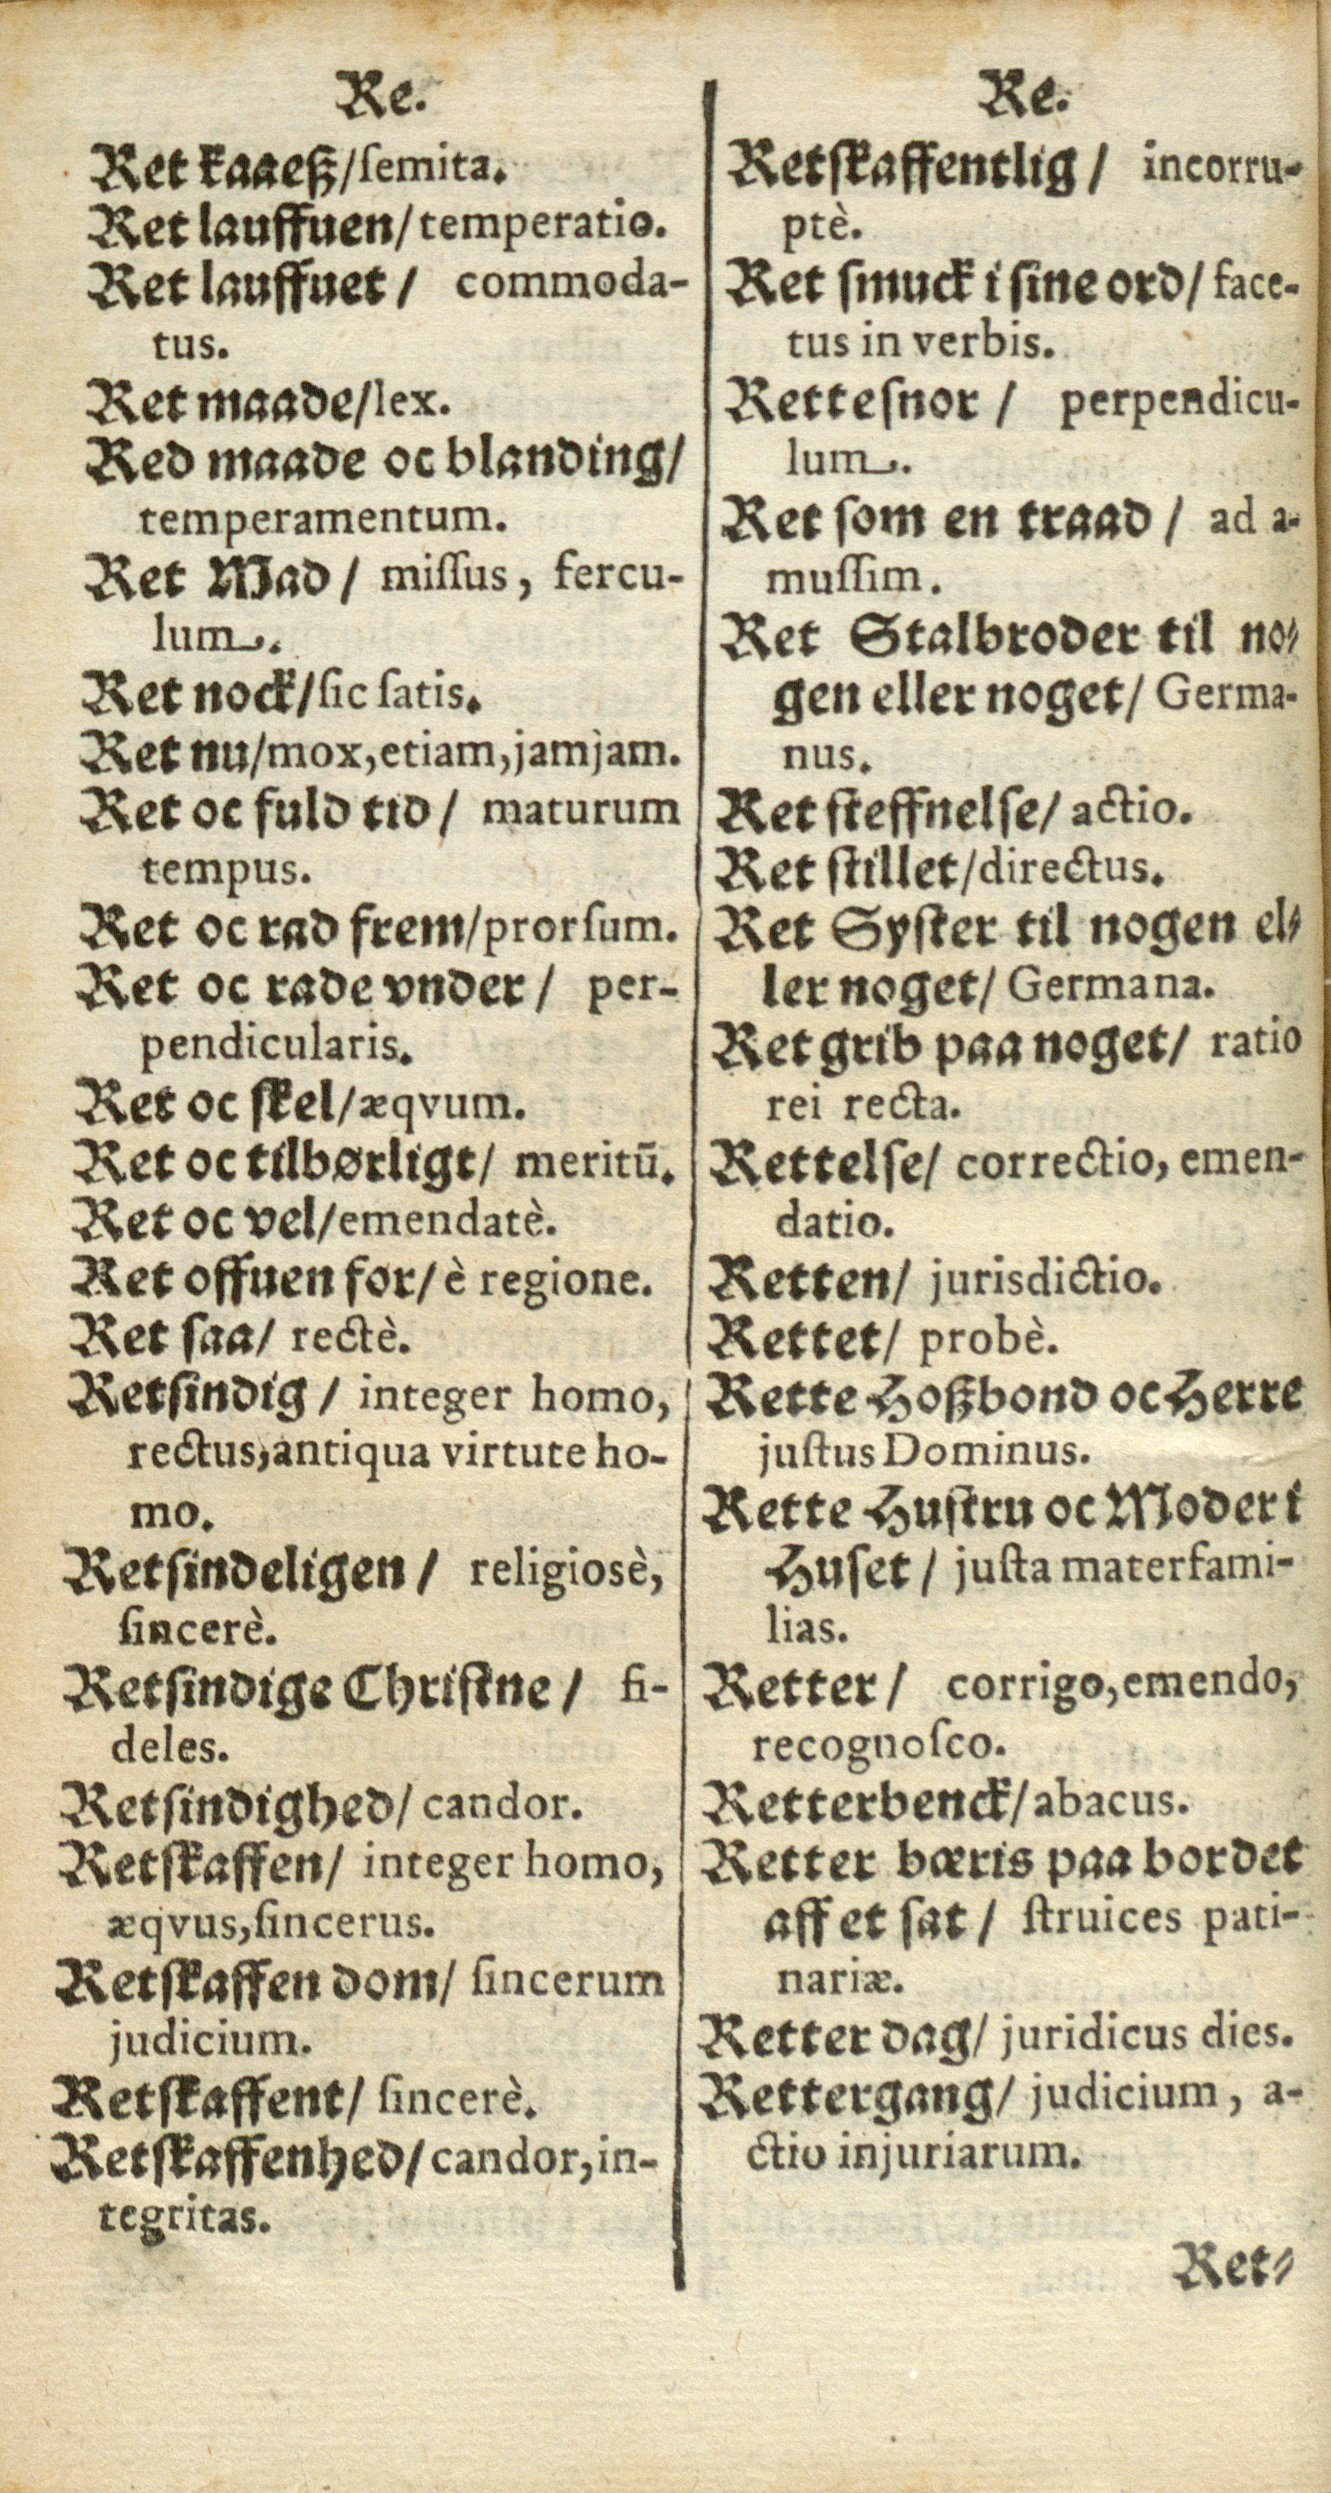 Re.
Ret kaaeß/ſemita.
Ret lauffuen/temperatio.
Ret lauffuet/ commoda-
tus.
Ret maade/lex.
Red maade oc blanding/
temperamentum.
Ret Mad/ miſſus, fercu-
lum.
Ret nock/ſic ſatis.
Ret nu/mox,etiam,jamjam.
Ret oc fuld tid/ maturum
tempus.
Ret oc rad frem/prorſum.
Ret oc rade vnder/ per-
pendicularis.
Ret oc ſkel/æqvum.
Ret oc tilbørligt/ meritū.
Ret oc vel/emendatè.
Ret offuen for/è regione.
Ret ſaa/ rectè.
Retſindig/ integer homo,
rectus,antiqua virtute ho-
mo.
Retſindeligen/ religiosè,
ſincerè.
Retſindige Chriſtne/ fi-
deles.
Retſindighed/candor.
Retſkaffen/ integer homo,
æqvus,ſincerus.
Retſkaffen dom/ ſincerum
judicium.
Retſkaffent/ ſincerè.
Retſkaffenhed/candor,in-
tegritas.
Re.
Retſkaffentlig/ incorru-
ptè.
Ret ſmuck i ſine ord/ face-
tus in verbis.
Retteſnor/ perpendicu-
lum.
Ret ſom en traad/ ad a-
muſſim.
Ret Stalbroder til no-
gen eller noget/ Germa-
nus.
Ret ſteffnelſe/ actio.
Ret ſtillet/directus.
Ret Syſter til nogen el-
ler noget/ Germana.
Ret grib paa noget/ ratio
rei recta.
Rettelſe/ correctio, emen-
datio.
Retten/ jurisdictio.
Rettet/ probè.
Rette Hoßbond oc Herre
juſtus Dominus.
Rette Huſtru oc Moder i
Huſet/ juſta materfami-
lias.
Retter/ corrigo,emendo,
recognoſco.
Retterbenck/abacus.
Retter bæris paa bordet
aff et ſat/ ſtruices pati-
nariæ.
Retter dag/ juridicus dies.
Rettergang/ judicium, a-
ctio injuriarum.
Ret-